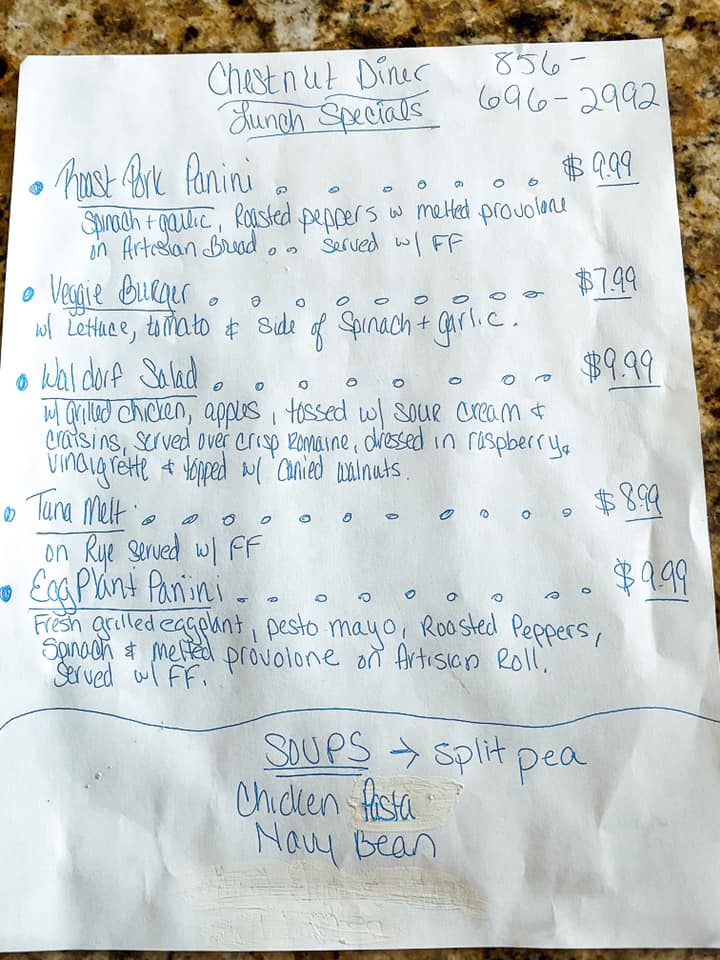 Chestnut Diner 856-
Lunch Specials 696-2992
• Roast Pork Panini . . . . . . . $9.99
Spinach + garlic, Roasted peppers w melted provolone
on Artesian Bread . . served w/ FF
• Veggie Burger . . . . . . . . . $7.99
w/ Lettuce, tomato & side of Spinach + garlic.
• Waldorf Salad . . . . . . . . $9.99
w/ grilled chicken, apples, tossed w/ sour cream &
craisins, served over crisp Romaine, dressed in raspberry
vinaigrette & topped w/ Canied walnuts.
• Tuna Melt . . . . . . . . . . . . $8.99
on Rye served w/ FF
• EggPlant Panini . . . . . . . . . $9.99
Fresh grilled eggplant, pesto mayo, Roasted Peppers,
Spinach & melted provolone on Artisian Roll.
Served w/ FF.
SOUPS → split pea
Chicken Pasta
Navy Bean